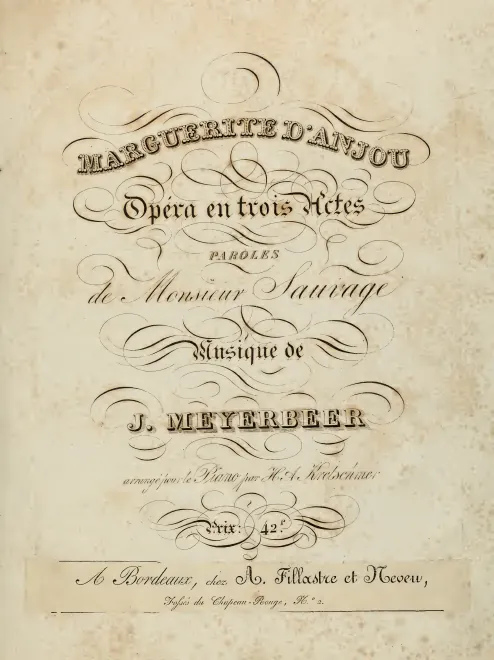 MARGUERITE D'ANJOU
Opéra en trois Actes
PAROLES
de Monsieur Sauvage
Musique de
J. MEYERBEER
arrangé pour le Piano, par H. A. Kretschmer
Prix: 42.f
A Bordeaux, chez A. Fillastre et Neveu,
Fossés du Chapeau-Rouge, N.º 2.